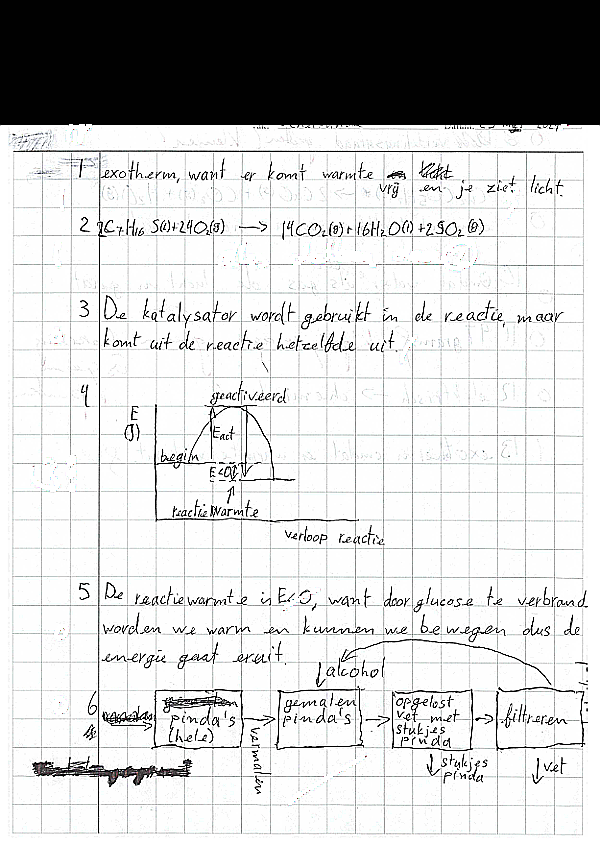 1 exotherm, want er komt warmte vrij en je ziet licht.
2 2C₇H₁₆S(l)+24O₂(g) —> 14CO₂(g)+16H₂O(l)+2SO₂(g)
3 De katalysator wordt gebruikt in de reactie, maar
komt uit de reactie hetzelfde uit.
4
geactiveerd
E
(J)
Eact
begin
E<0
reactiewarmte
verloop reactie
5 De reactiewarmte is E<0, want door glucose te verbrand
worden we warm en kunnen we bewegen dus de
energie gaat eruit.
alcohol
6
pinda's
(hele)
vermalen
gemalen
pinda's
opgelost
vet met
stukjes
pinda
filtreren
stukjes
pinda
vet